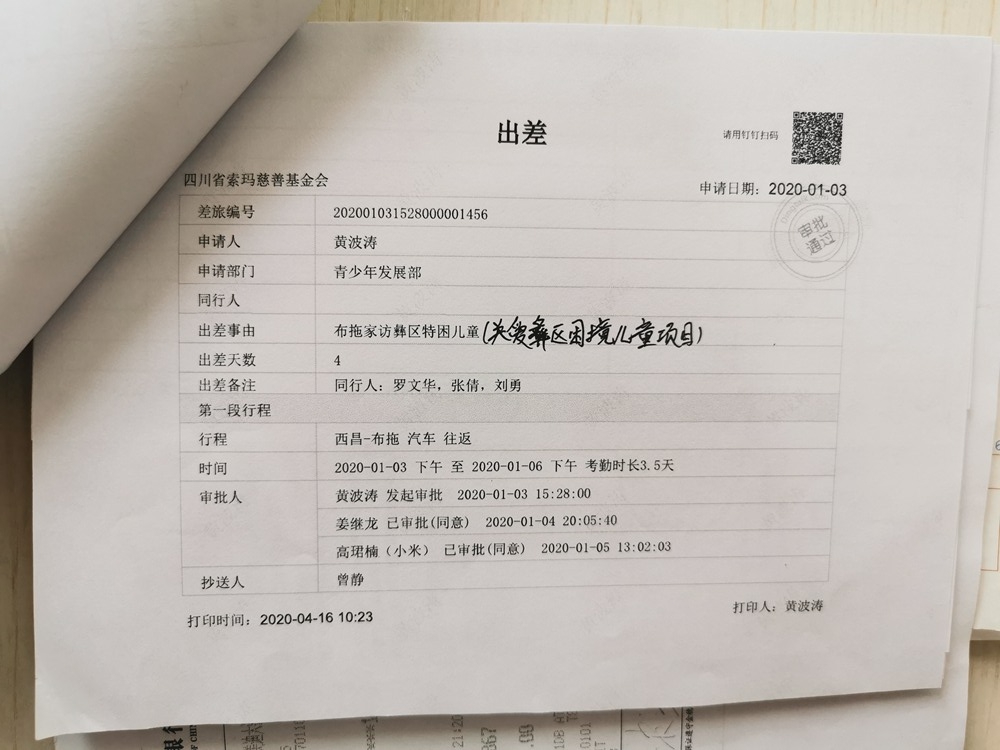 出差
请用钉钉扫码
四川省索玛慈善基金会
申请日期：2020-01-03
审批
通过
差旅编号 202001031528000001456
申请人 黄波涛
申请部门 青少年发展部
同行人
出差事由 布拖家访彝区特困儿童(关爱彝区困境儿童项目)
出差天数 4
出差备注 同行人：罗文华，张倩，刘勇
第一段行程
行程 西昌-布拖 汽车 往返
时间 2020-01-03 下午 至 2020-01-06 下午 考勤时长3.5天
审批人 黄波涛 发起审批 2020-01-03 15:28:00
姜继龙 已审批(同意) 2020-01-04 20:05:40
高珺楠（小米） 已审批(同意) 2020-01-05 13:02:03
抄送人 曾静
打印时间：2020-04-16 10:23
打印人：黄波涛